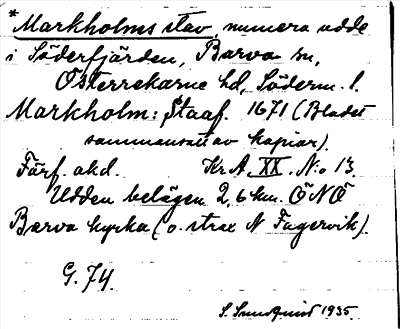 *Markholms stav, numera udde
i Söderfjärden, Barva sn,
Österrekarne hd, Söderm. l.
Markholm: Staaf. 1671 (Bladet
sammansatt av kopior).
Färf. akd. Kr A. XX. N:o 13.
Udden belägen 2,6 km. ÖNÖ
Barva kyrka (o. strax N Fagervik).
G. 74.
S. Sundquist 1935.